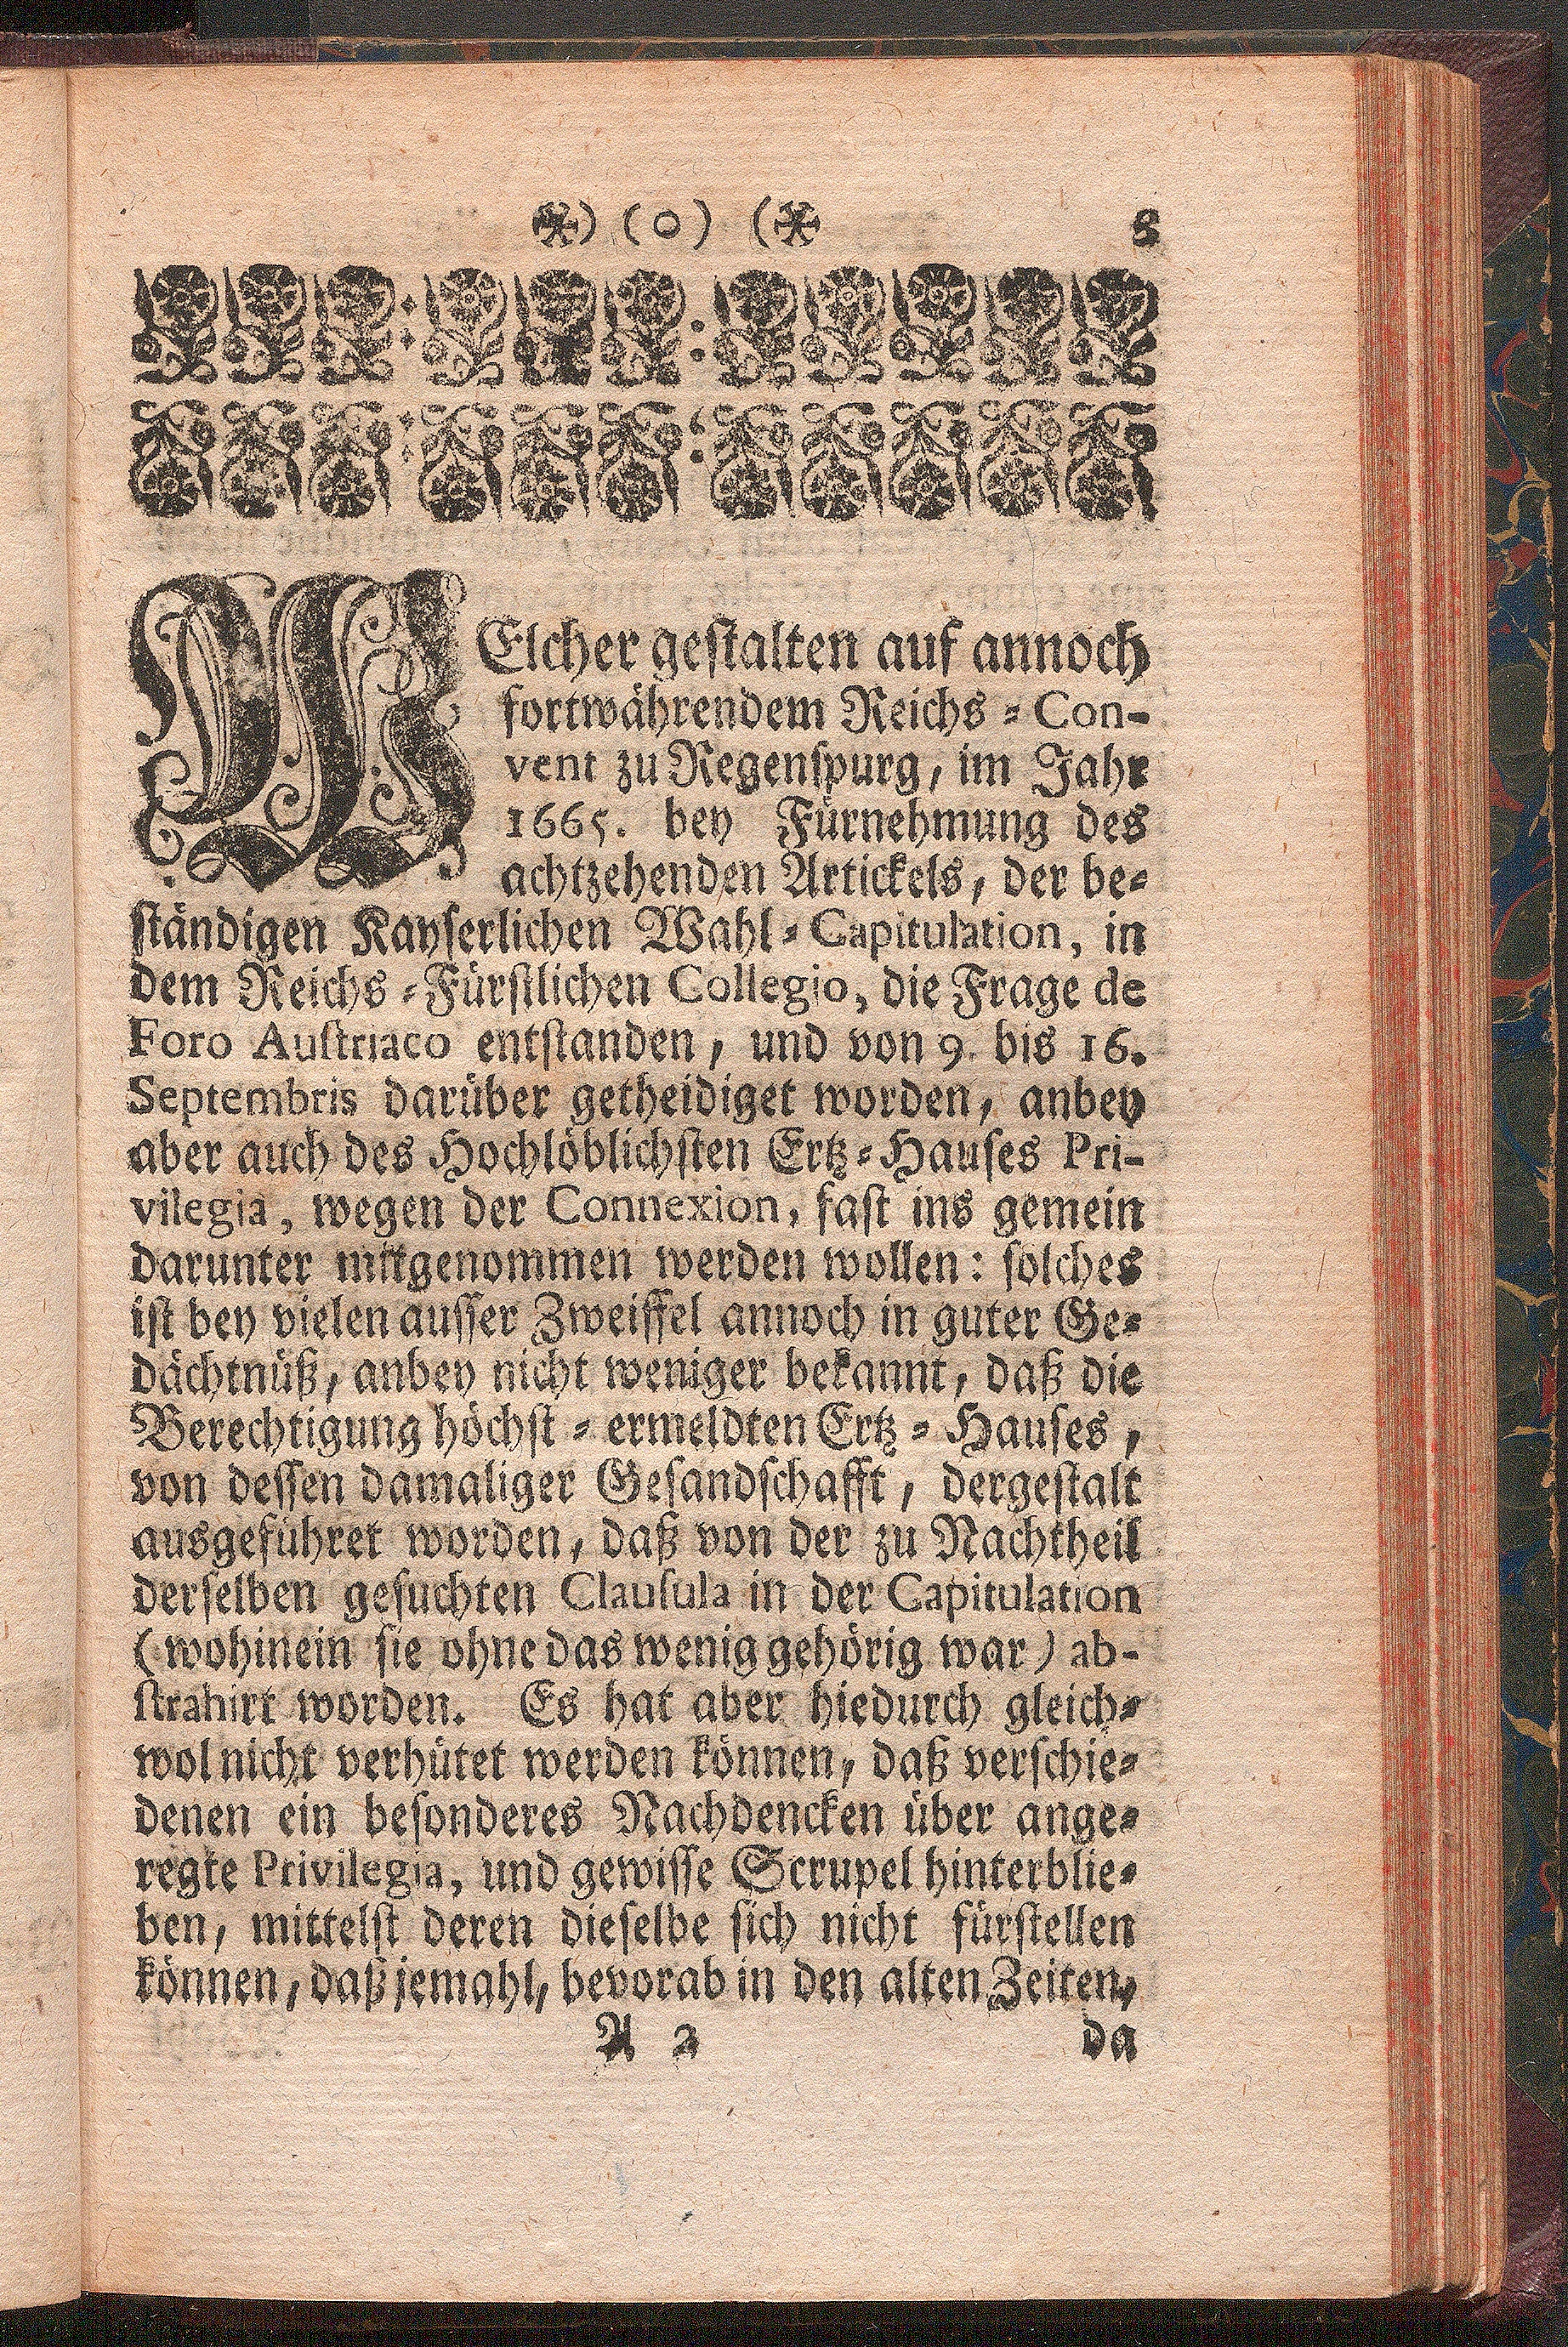 ❋) (o) (❋ 3
WElcher geſtalten auf annoch
fortwährendem Reichs-Con-
vent zu Regenſpurg, im Jahr
1665. bey Fürnehmung des
achtzehenden Artickels, der be-
ſtändigen Kayſerlichen Wahl-Capitulation, in
dem Reichs-Fürſtlichen Collegio, die Frage de
Foro Auſtriaco entſtanden, und von 9. bis 16.
Septembris darüber getheidiget worden, anbey
aber auch des Hochlöblichſten Ertz-Hauſes Pri-
vilegia, wegen der Connexion, faſt ins gemein
darunter mitgenommen werden wollen: ſolches
iſt bey vielen auſſer Zweiffel annoch in guter Ge-
dächtnüß, anbey nicht weniger bekannt, daß die
Berechtigung höchſt-ermeldten Ertz-Hauſes,
von deſſen damaliger Geſandſchafft, dergeſtalt
ausgeführet worden, daß von der zu Nachtheil
derſelben geſuchten Clauſula in der Capitulation
(wohinein ſie ohne das wenig gehörig war) ab-
ſtrahirt worden. Es hat aber hiedurch gleich-
wol nicht verhütet werden können, daß verſchie-
denen ein beſonderes Nachdencken über ange-
regte Privilegia, und gewiſſe Scrupel hinterblie-
ben, mittelſt deren dieſelbe ſich nicht fürſtellen
können, daß jemahl, bevorab in den alten Zeiten,
A 2 da